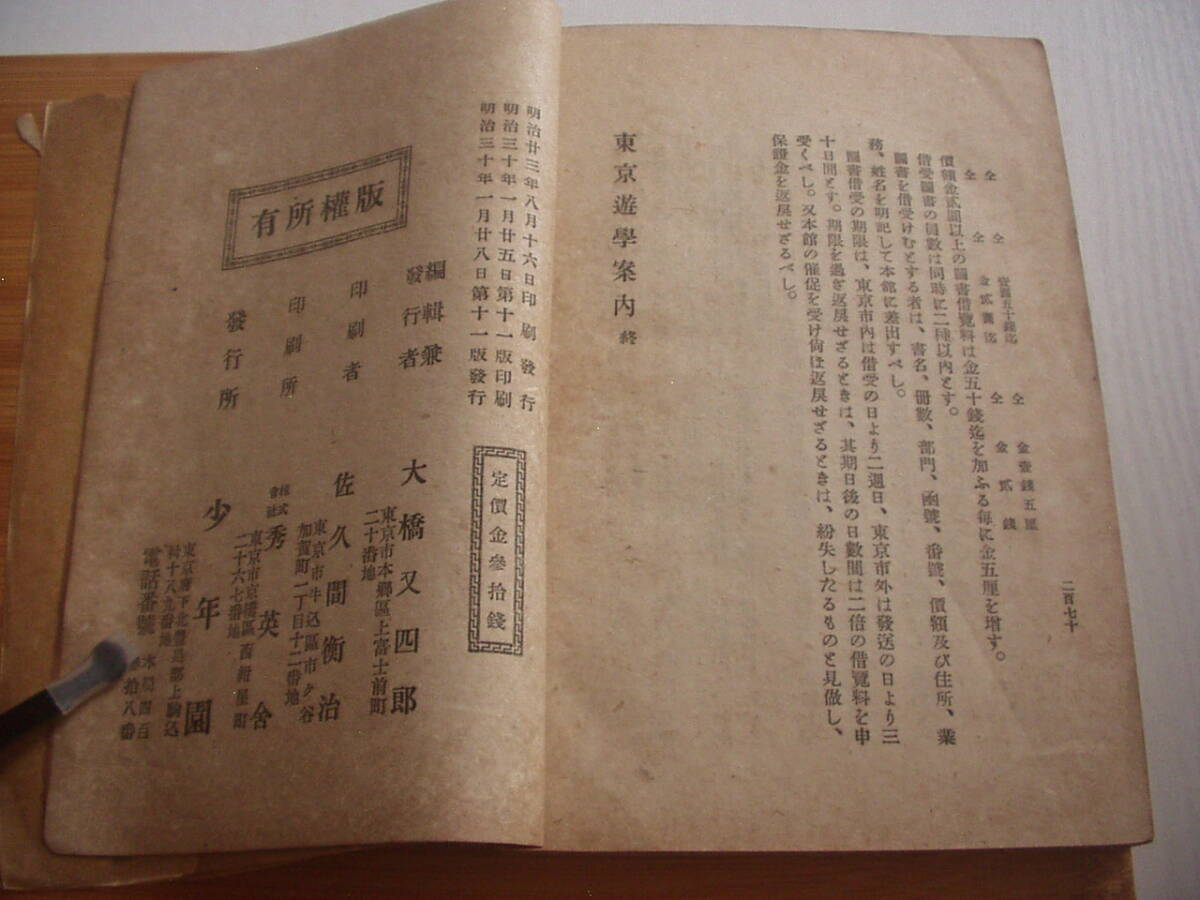 二百七十
仝 仝 壹圓五十錢迄 仝 金壹錢五厘
仝 仝 金貳圓迄 仝 金貳錢
價額金貳圓以上の圖書借覽料は金五十錢迄を加ふる每に金五厘を增す。
借受圖書の員數は同時に二種以內とす。
圖書を借受けむとする者は、書名、冊數、部門、凾號、番號、價額及び住所、業
務、姓名を明記して本館に差出すべし。
圖書借受の期限は、東京市內は借受の日より二週日、東京市外は發送の日より三
十日間とす。期限を過ぎ返戾せざるときは、其期日後の日數間は二倍の借覽料を申
受くべし。又本館の催促を受け尙ほ返戾せざるときは、紛失したるものと見做し、
保證金を返戾せざるべし。
東京遊學案內 終
明治廿三年八月十六日印刷發行
明治三十年一月廿五日第十一版印刷
明治三十年一月廿八日第十一版發行
定價金參拾錢
版權所有
編輯兼
發行者
大橋又四郎
東京市本鄕區上富士前町
二十番地
印刷者
佐久間衡治
東京市牛込區市ケ谷
加賀町一丁目十二番地
印刷所
株式會社
秀英舍
東京市京橋區西紺屋町
二十六七番地
發行所
少年園
東京府下北豐島郡上駒込
村十八九番地
電話番號 本局四百
拾八番